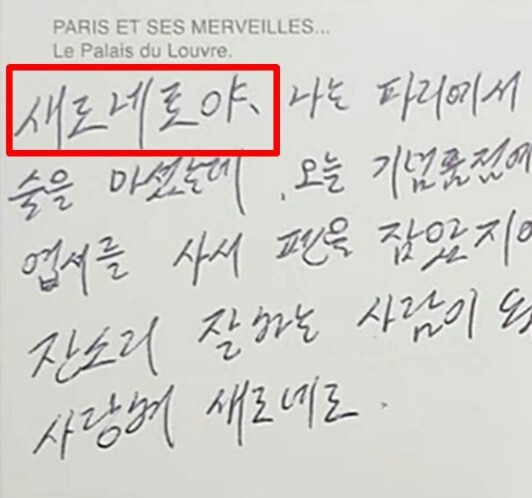 PARIS ET SES MERVEILLES...
Le Palais du Louvre.
새로네로야, 나는 파리에서
술을 마셨는데, 오늘 기념품점에
엽서를 사서 펜을 잡았지
잔소리 잘하는 사람이
사랑해 새로네로.